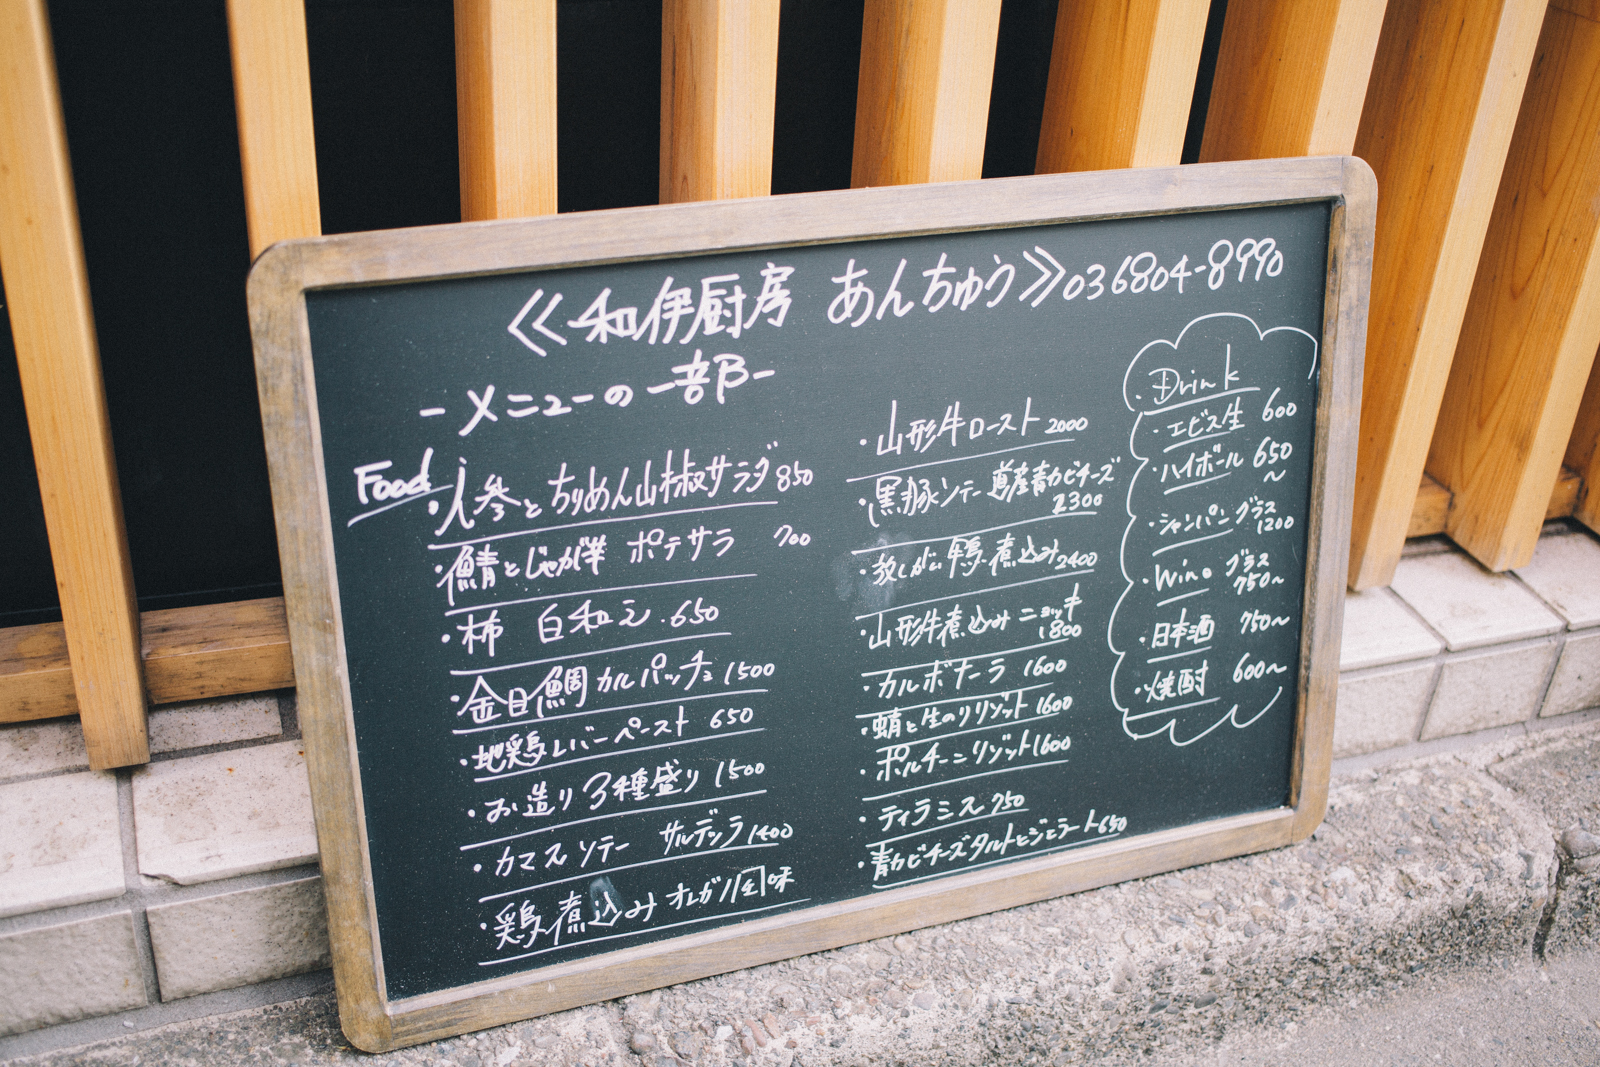 ≪和伊厨房 あんちゅう≫03 6804-8990
-メニューの一部-
Food
・人参とちりめん山椒サラダ 850
・鯖とじゃが芋 ポテサラ 700
・柿 白和え・650
・金目鯛カルパッチョ 1500
・地鶏レバーペースト 650
・お造り3種盛り 1500
・カマスソテー サルデッラ 1400
・鶏煮込み オレガノ風味
・山形牛ロースト 2000
・黒豚ソテー 道産青カビチーズ
2300
・放し飼い鴨煮込み 2400
・山形牛煮込みニョッキ
1800
・カルボナーラ 1600
・蛸と生のりリゾット 1600
・ポルチーニリゾット 1600
・ティラミス 750
・青カビチーズタルトとジェラート 650
・Drink
・エビス生 600
・ハイボール 650
～
・シャンパングラス
1200
・Wine グラス
750～
・日本酒 750～
・焼酎 600～